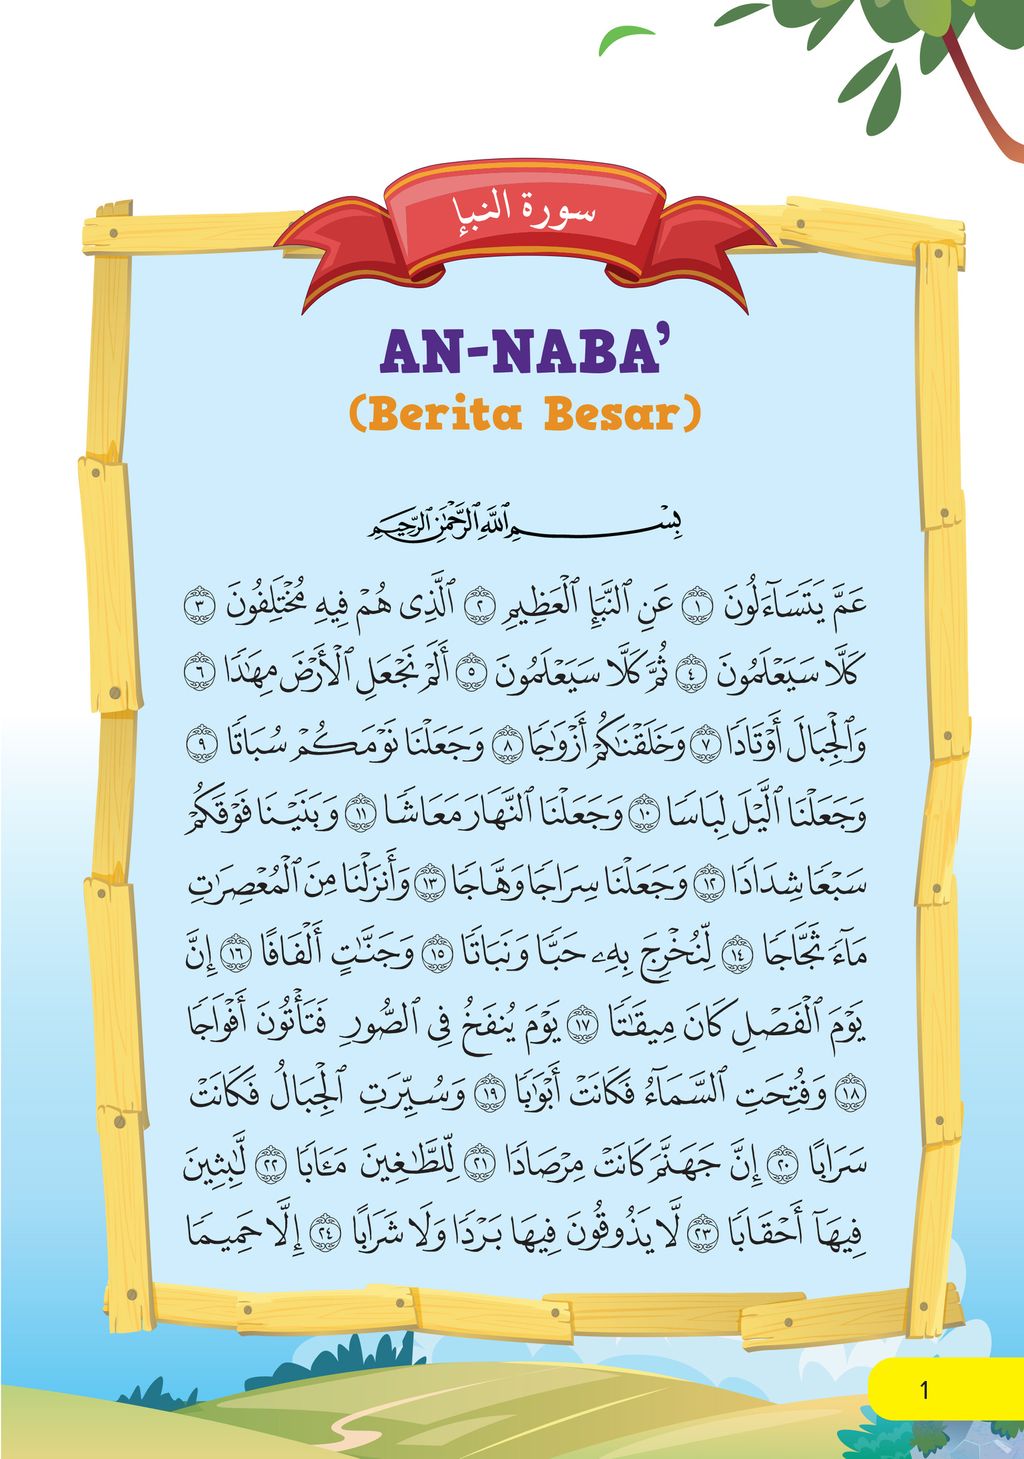 سورة النبإ
AN-NABA’
(Berita Besar)
بِسْمِ ٱللَّهِ ٱلرَّحْمَٰنِ ٱلرَّحِيمِ
عَمَّ يَتَسَآءَلُونَ ١ عَنِ ٱلنَّبَإِ ٱلْعَظِيمِ ٢ ٱلَّذِى هُمْ فِيهِ مُخْتَلِفُونَ ٣
كَلَّا سَيَعْلَمُونَ ٤ ثُمَّ كَلَّا سَيَعْلَمُونَ ٥ أَلَمْ نَجْعَلِ ٱلْأَرْضَ مِهَٰدًا ٦
وَٱلْجِبَالَ أَوْتَادًا ٧ وَخَلَقْنَٰكُمْ أَزْوَٰجًا ٨ وَجَعَلْنَا نَوْمَكُمْ سُبَاتًا ٩
وَجَعَلْنَا ٱلَّيْلَ لِبَاسًا ١٠ وَجَعَلْنَا ٱلنَّهَارَ مَعَاشًا ١١ وَبَنَيْنَا فَوْقَكُمْ
سَبْعًا شِدَادًا ١٢ وَجَعَلْنَا سِرَاجًا وَهَّاجًا ١٣ وَأَنزَلْنَا مِنَ ٱلْمُعْصِرَٰتِ
مَآءً ثَجَّاجًا ١٤ لِّنُخْرِجَ بِهِۦ حَبًّا وَنَبَاتًا ١٥ وَجَنَّٰتٍ أَلْفَافًا ١٦ إِنَّ
يَوْمَ ٱلْفَصْلِ كَانَ مِيقَٰتًا ١٧ يَوْمَ يُنفَخُ فِى ٱلصُّورِ فَتَأْتُونَ أَفْوَاجًا
١٨ وَفُتِحَتِ ٱلسَّمَآءُ فَكَانَتْ أَبْوَٰبًا ١٩ وَسُيِّرَتِ ٱلْجِبَالُ فَكَانَتْ
سَرَابًا ٢٠ إِنَّ جَهَنَّمَ كَانَتْ مِرْصَادًا ٢١ لِّلطَّٰغِينَ مَـَٔابًا ٢٢ لَّٰبِثِينَ
فِيهَآ أَحْقَابًا ٢٣ لَّا يَذُوقُونَ فِيهَا بَرْدًا وَلَا شَرَابًا ٢٤ إِلَّا حَمِيمًا
1